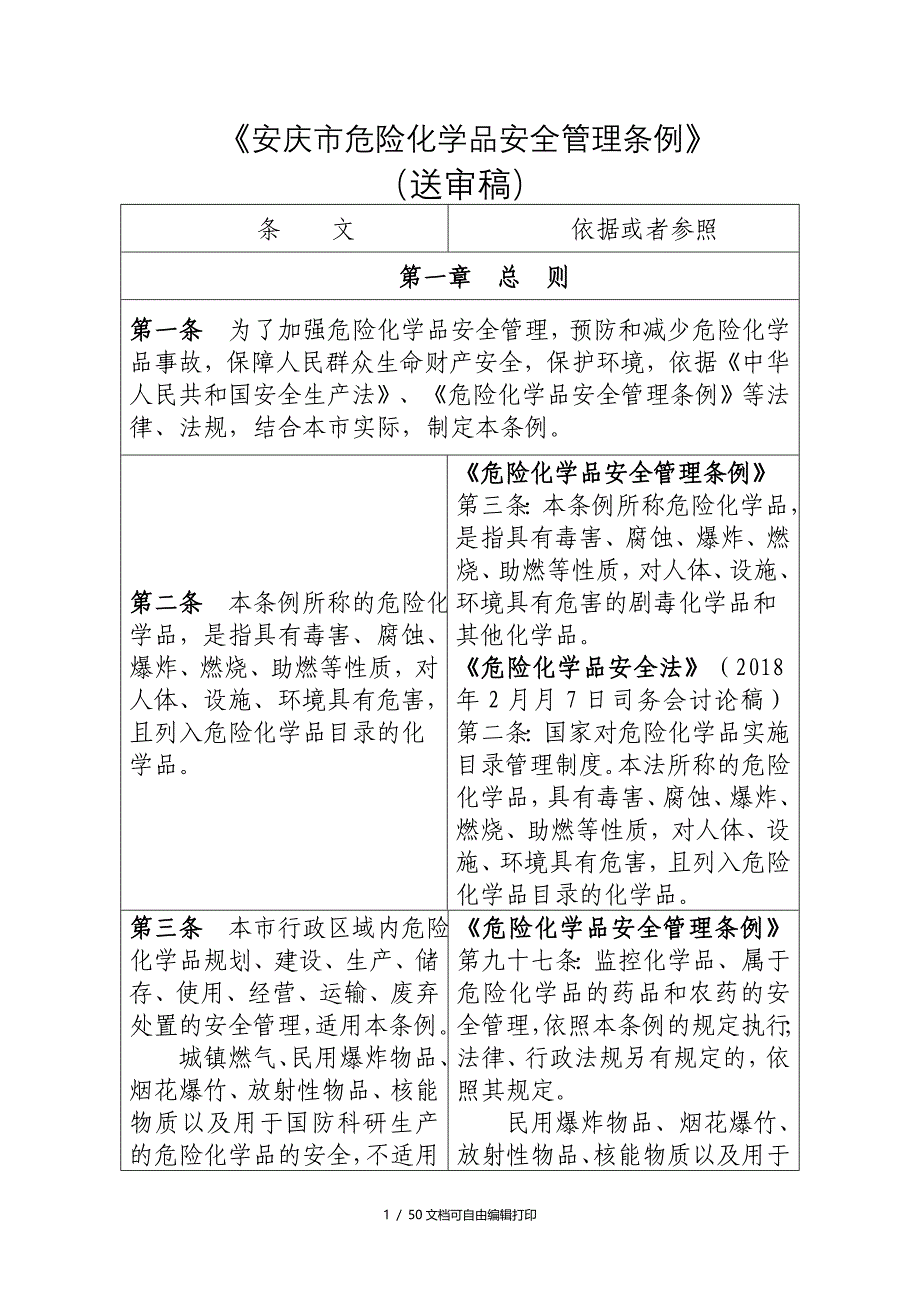 《安庆市危险化学品安全管理条例》
（送审稿）
条　　文
依据或者参照
第一章　总　则
第一条　为了加强危险化学品安全管理，预防和减少危险化学
品事故，保障人民群众生命财产安全，保护环境，依据《中华
人民共和国安全生产法》、《危险化学品安全管理条例》等法
律、法规，结合本市实际，制定本条例。
第二条　本条例所称的危险化
学品，是指具有毒害、腐蚀、
爆炸、燃烧、助燃等性质，对
人体、设施、环境具有危害，
且列入危险化学品目录的化
学品。
《危险化学品安全管理条例》
第三条：本条例所称危险化学品，
是指具有毒害、腐蚀、爆炸、燃
烧、助燃等性质，对人体、设施、
环境具有危害的剧毒化学品和
其他化学品。
《危险化学品安全法》（2018
年2月月7日司务会讨论稿）
第二条：国家对危险化学品实施
目录管理制度。本法所称的危险
化学品，具有毒害、腐蚀、爆炸、
燃烧、助燃等性质，对人体、设
施、环境具有危害，且列入危险
化学品目录的化学品。
第三条　本市行政区域内危险
化学品规划、建设、生产、储
存、使用、经营、运输、废弃
处置的安全管理，适用本条例。
城镇燃气、民用爆炸物品、
烟花爆竹、放射性物品、核能
物质以及用于国防科研生产
的危险化学品的安全，不适用
《危险化学品安全管理条例》
第九十七条：监控化学品、属于
危险化学品的药品和农药的安
全管理，依照本条例的规定执行；
法律、行政法规另有规定的，依
照其规定。
民用爆炸物品、烟花爆竹、
放射性物品、核能物质以及用于
1 / 50文档可自由编辑打印